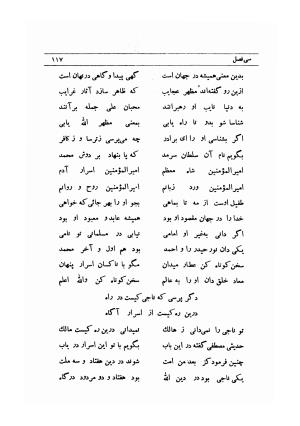 سی فصل ۱۱۷
بدین معنی همیشه در جهان است گهی پیدا و گاهی در نهان است
ازین رو گفته‌اند مظهر عجایب که ظاهر سازد آثار غرایب
به دنیا نایب او رهبرانند محبان علی جمله برآنند
شناسا شو بدو تا راه یابی بمعنی مظهر الله یابی
اگر بشناسی او را ای برادر چه می‌پرسی ز ترسا و ز کافر
بگویم نام آن سلطان سرمد که پا بنهاد بر دوش محمد
امیرالمؤمنین شاه معظم امیرالمؤمنین اسرار آدم
امیرالمؤمنین ورد زبانم امیرالمؤمنین روح و روانم
طفیل اوست از مه تا بماهی بجو او را بهر جائی که خواهی
خدا را در جهان مقصود او بود همیشه عابد و معبود او بود
اگر دانی به‌غیر او امامی نباشی در مسلمانی تو نامی
یکی دان نور حیدر را و احمد بود هم اول و آخر محمد
سخن کوتاه کن عطار میدان مگو با ناکسان اسرار پنهان
معاد خلق دان او را به عالم سخن کوتاه کن والله اعلم
دگر پرسی که ناجی کیست در راه
درین ره کیست از اسرار آگاه
تو ناجی را نمی‌دانی ز هالک نمیدانی درین ره کیست مالک
حدیثی مصطفی گفته در این باب بگویم با تو این اسرار در یاب
چنین فرمود کز بعد من امت شوند در دین هفتاد و سه ملت
یکی ناجی بود در دین الله بود هفتاد و دو مردود درگاه